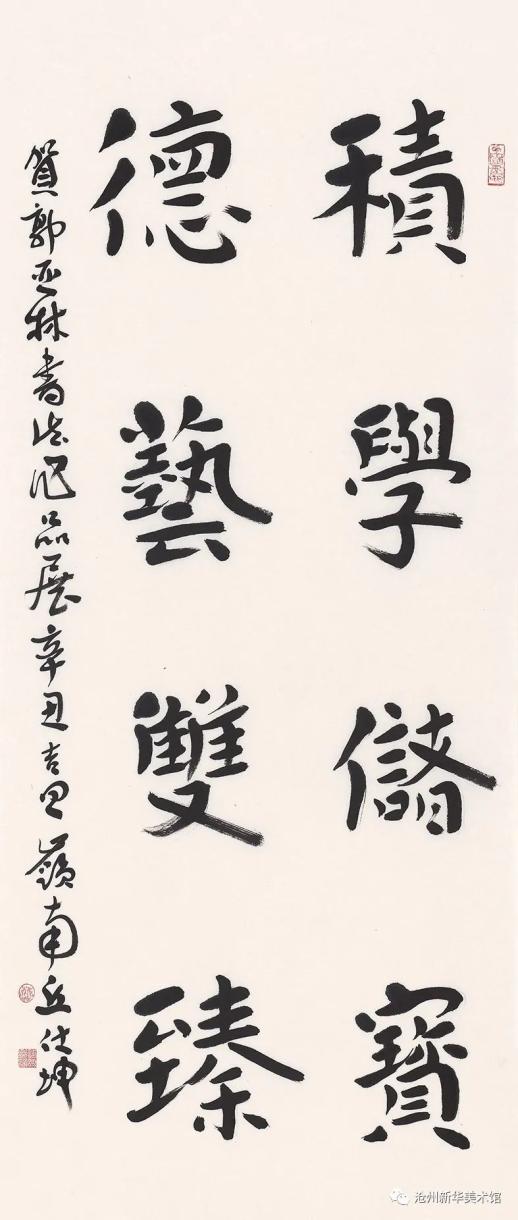 積學儲寶
德藝雙臻
賀郭亚林書法作品展辛丑吉日嶺南丘仕坤
沧州新华美术馆